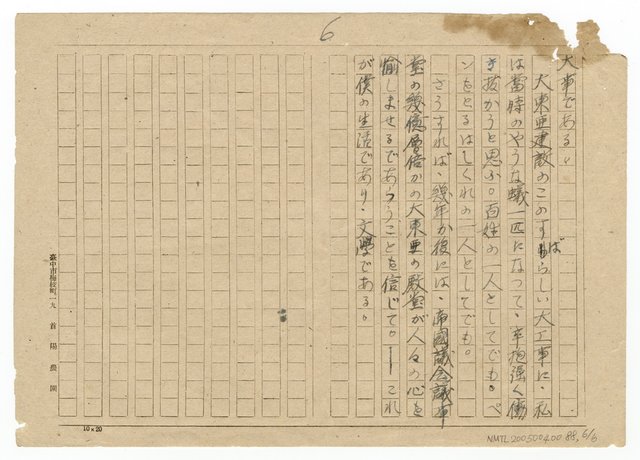 6
大事である。
大東亜建設のこのすばらしい大工事に、私
は當時のやうな蟻一匹になつて、辛抱强く働
き拔かうと思ふ。百姓の一人としてでも。ペ
ンをとるはしくれの一人としてでも。
さうすれば、幾年か後には、帝國議會議事
堂の幾億層倍かの大東亜の殿堂が人々の心を
愉しませるであらうことを信じて。——これ
が僕の生活であり、文學である。
臺中市梅枝町一九 首陽農園
10×20
NMTL20050040088, 6/6